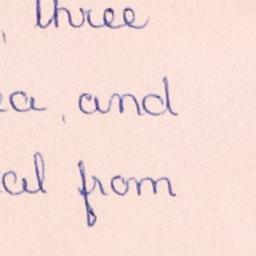 , three
ea, and
al from